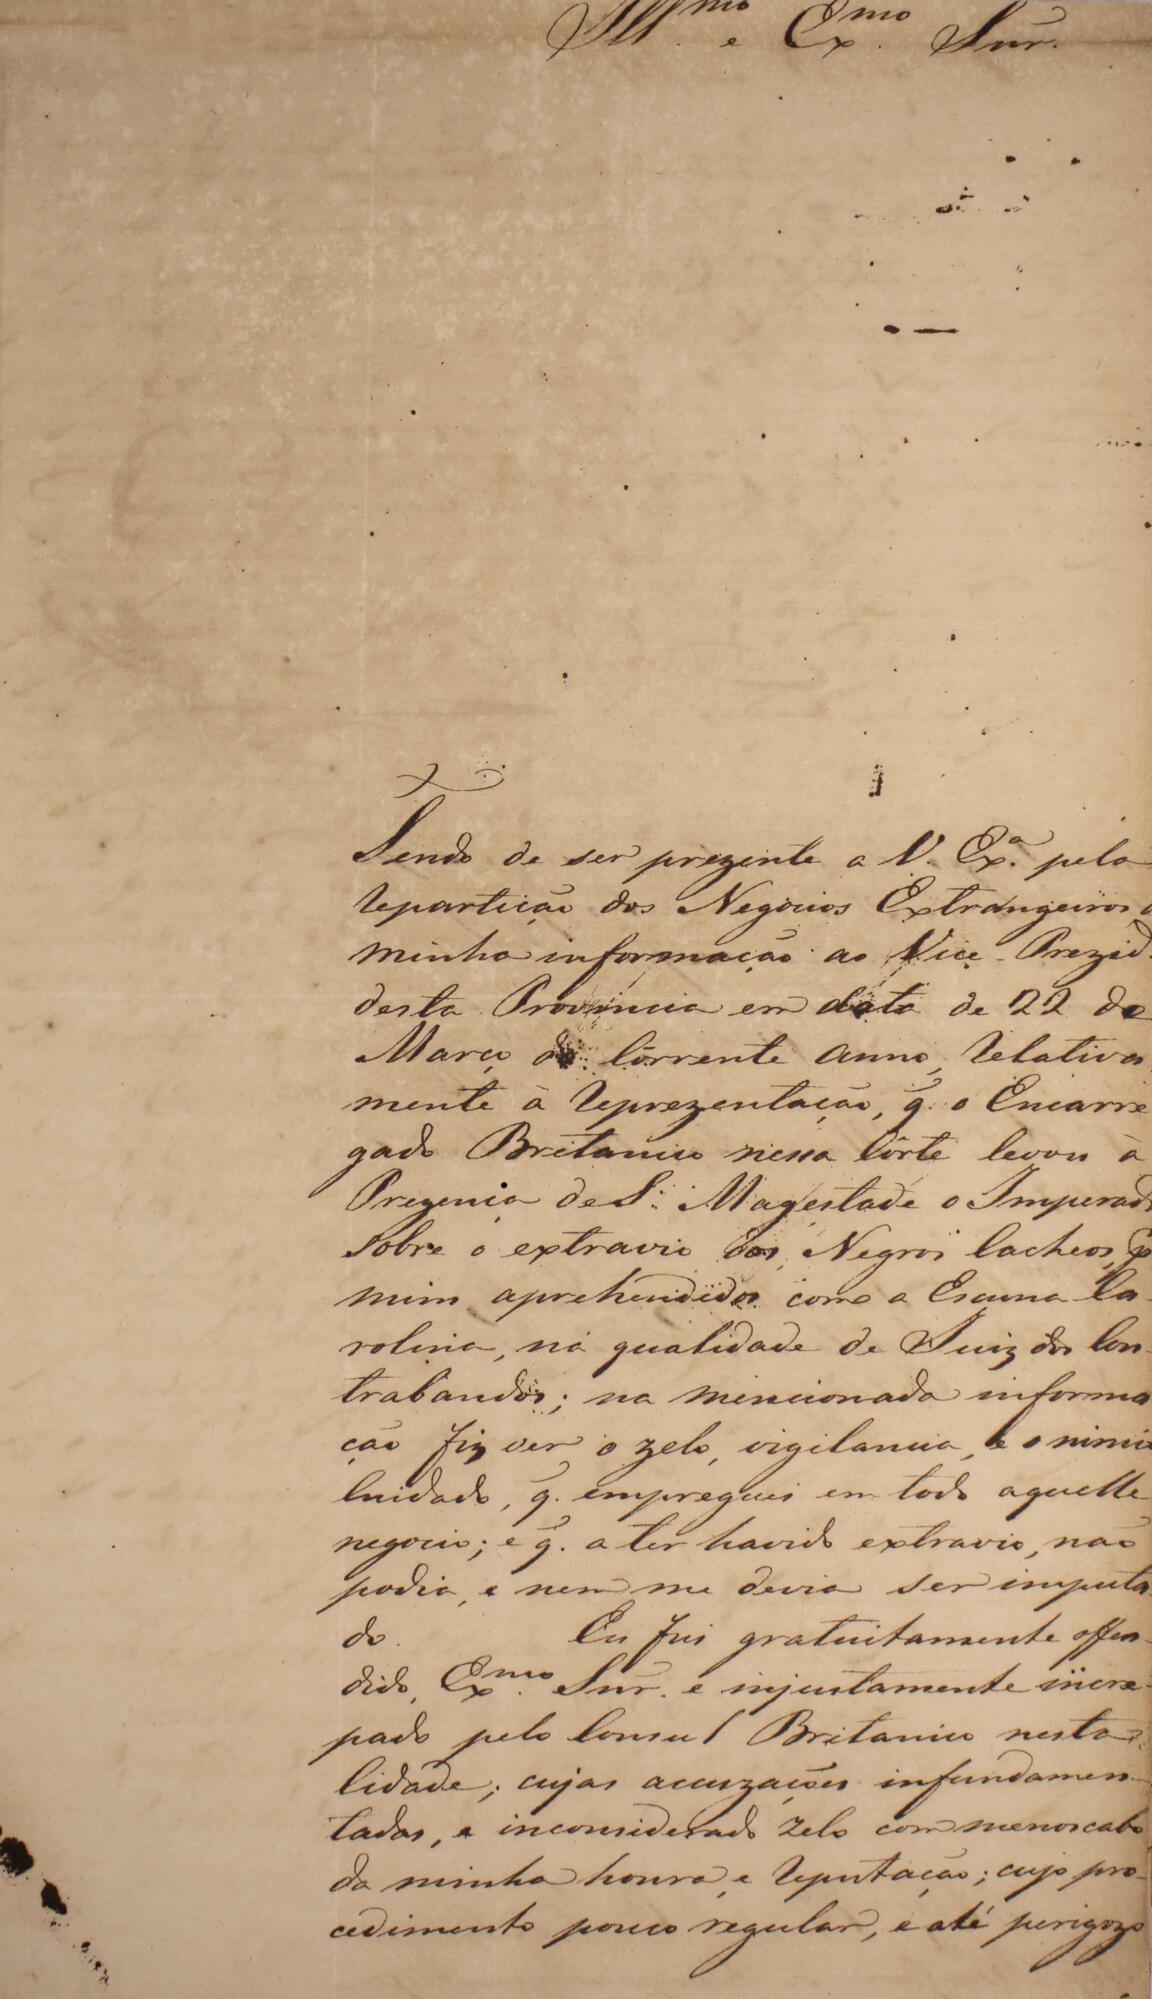 Illmo. e Exmo. Snr.
Sendo de ser prezente a V. Exa. pela
repartição dos Negocios Extrangeiros, a
minha informação ao Vice-Prezid.
desta Provincia em data de 22 de
Março do Corrente anno, relativa
mente à reprezentação, q. o Encarre
gado Britanico nessa Côrte levou à
Prezença de S. Magestade o Imperad
sobre o extravio dos Negros bacheos, p
mim aprehendidos com a Escuna Ca-
rolina, na qualidade de Juiz dos Con-
trabandos; na mencionada informa
ção fiz ver o zelo, vigilancia, e o nimio
Cuidado, q. empreguei em todo aquelle
negocio; e q. a ter havido extravio, não
podia, e nem me devia ser imputa-
do. Eu fui gratuitamente offen-
dido, Exmo. Snr. e injustamente incre-
pado pelo Consul Britanico nesta
Cidade; cujas accuzações infundamen-
tadas, e inconsiderado zelo com menoscabo
da minha honra, e reputação; cujo pro-
cedimento pouco regular, e até perigozo